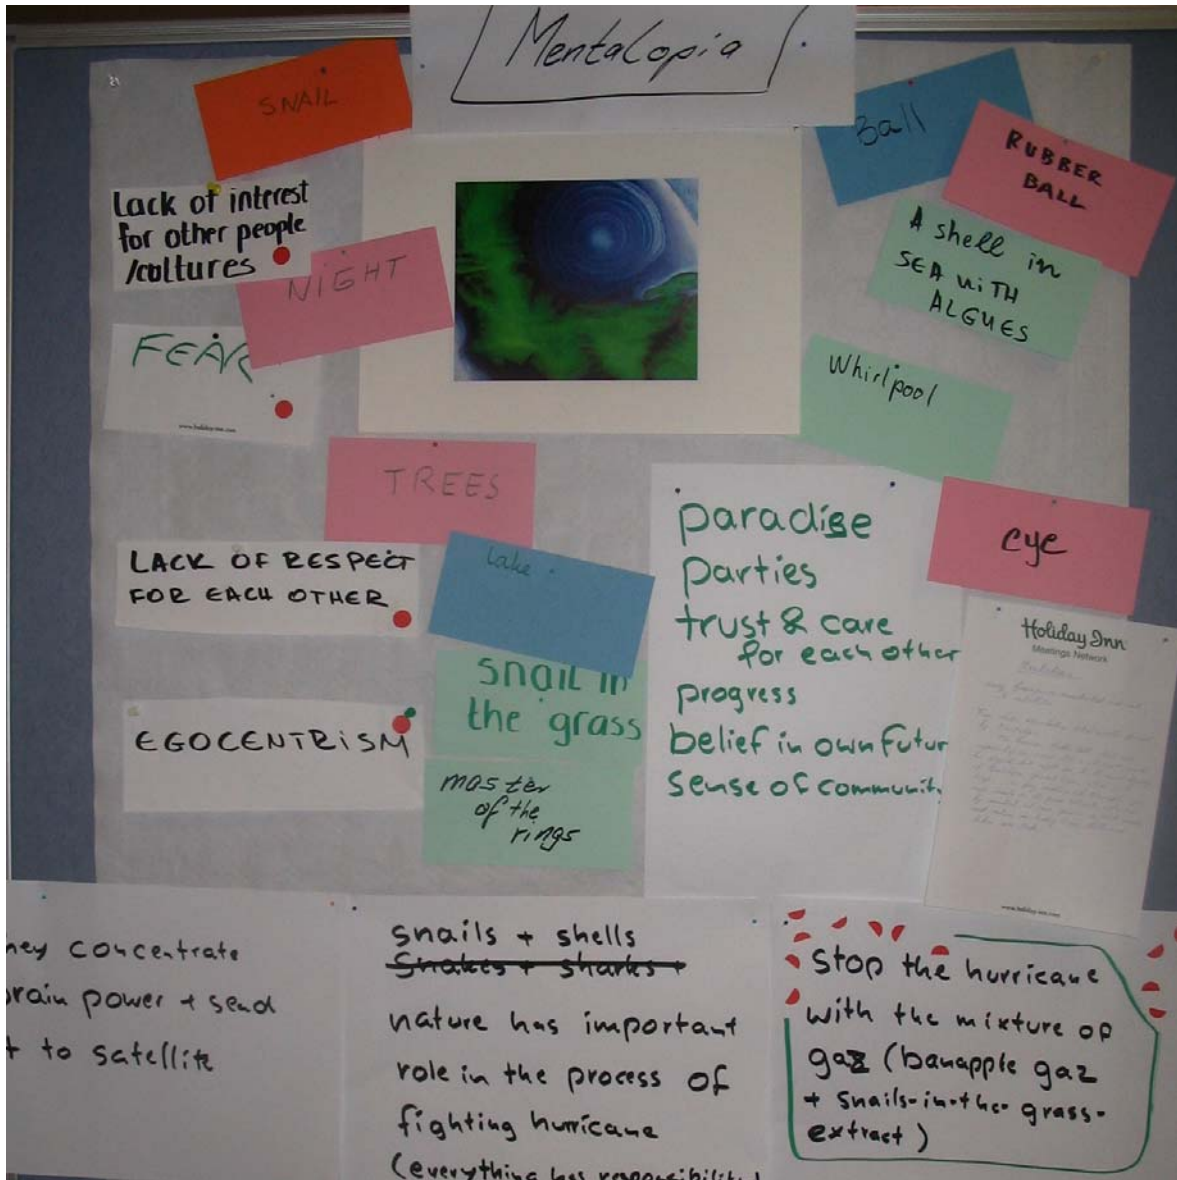 Mentalopia
SNAIL
Ball
RUBBER
BALL
Lack of interest
for other people
/cultures
NIGHT
A shell in
SEA WITH
ALGUES
FEAR
www.holiday-inn.com
Whirlpool
TREES
eye
LACK OF RESPECT
FOR EACH OTHER
Lake
snail in
the grass
EGOCENTRISM
master
of the
rings
paradise
parties
trust & care
for each other
progress
belief in own futur
sense of communit
Holiday Inn
Meetings Network
www.holiday-inn.com
hey concentrate
brain power + send
t to satellite
snails + shells
Snakes + sharks +
nature has important
role in the process of
fighting hurricane
(everything has responsibility)
Stop the hurricane
with the mixture of
gaz (banapple gaz
+ snails-in-the-grass-
extract)